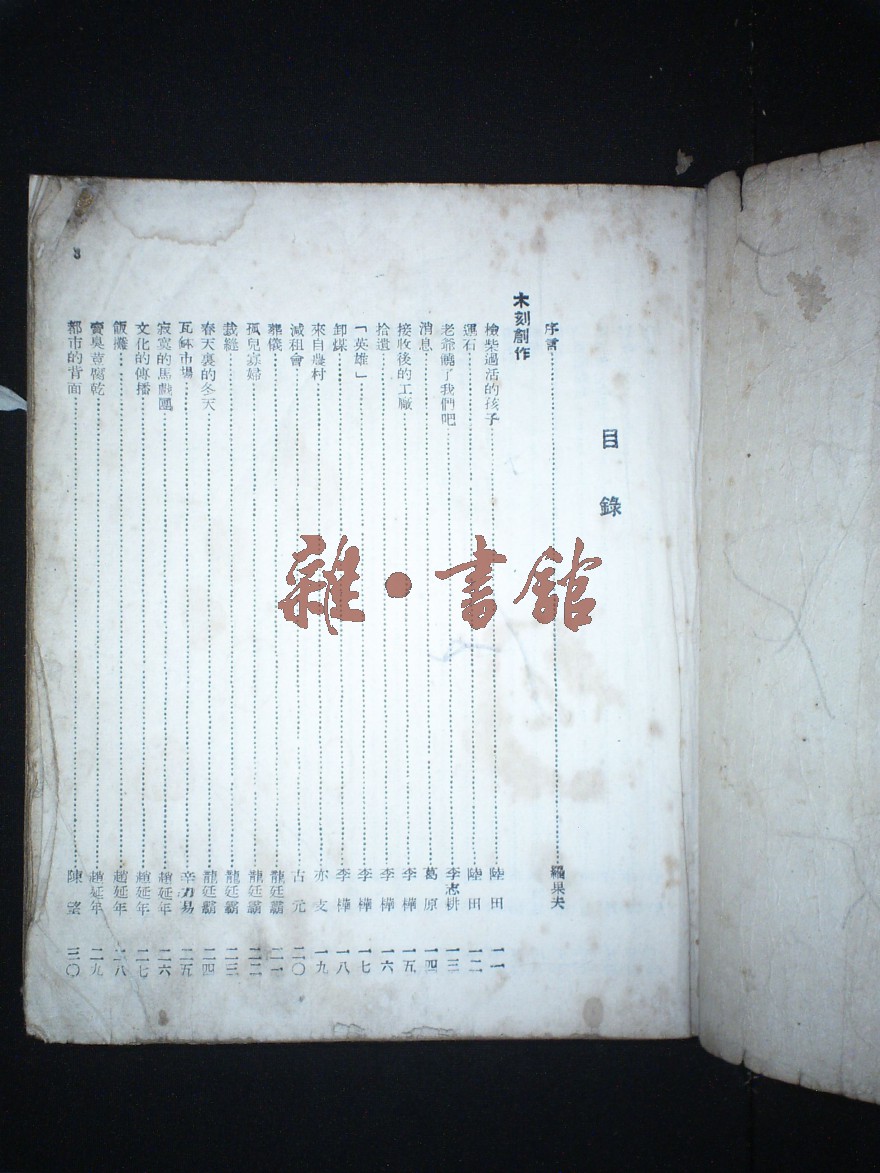 目錄
序言……羅果夫
木刻創作
檢柴過活的孩子……陸田 一一
運石……陸田 一二
老爺饒了我們吧……李志耕 一三
消息……葛原 一四
接收後的工廠……李樺 一五
拾遺……李樺 一六
「英雄」……李樺 一七
卸煤……李樺 一八
來自農村……亦支 一九
減租會……古元 二〇
葬儀……龍廷霸 二一
孤兒寡婦……龍廷霸 二二
裁縫……龍廷霸 二三
春天裏的冬天……龍廷霸 二四
瓦缽市場……辛力易 二五
寂寞的馬戲團……趙延年 二六
文化的傳播……趙延年 二七
飯攤……趙延年 二八
賣臭荳腐乾……趙延年 二九
都市的背面……陳望 三〇
3
雜·書館